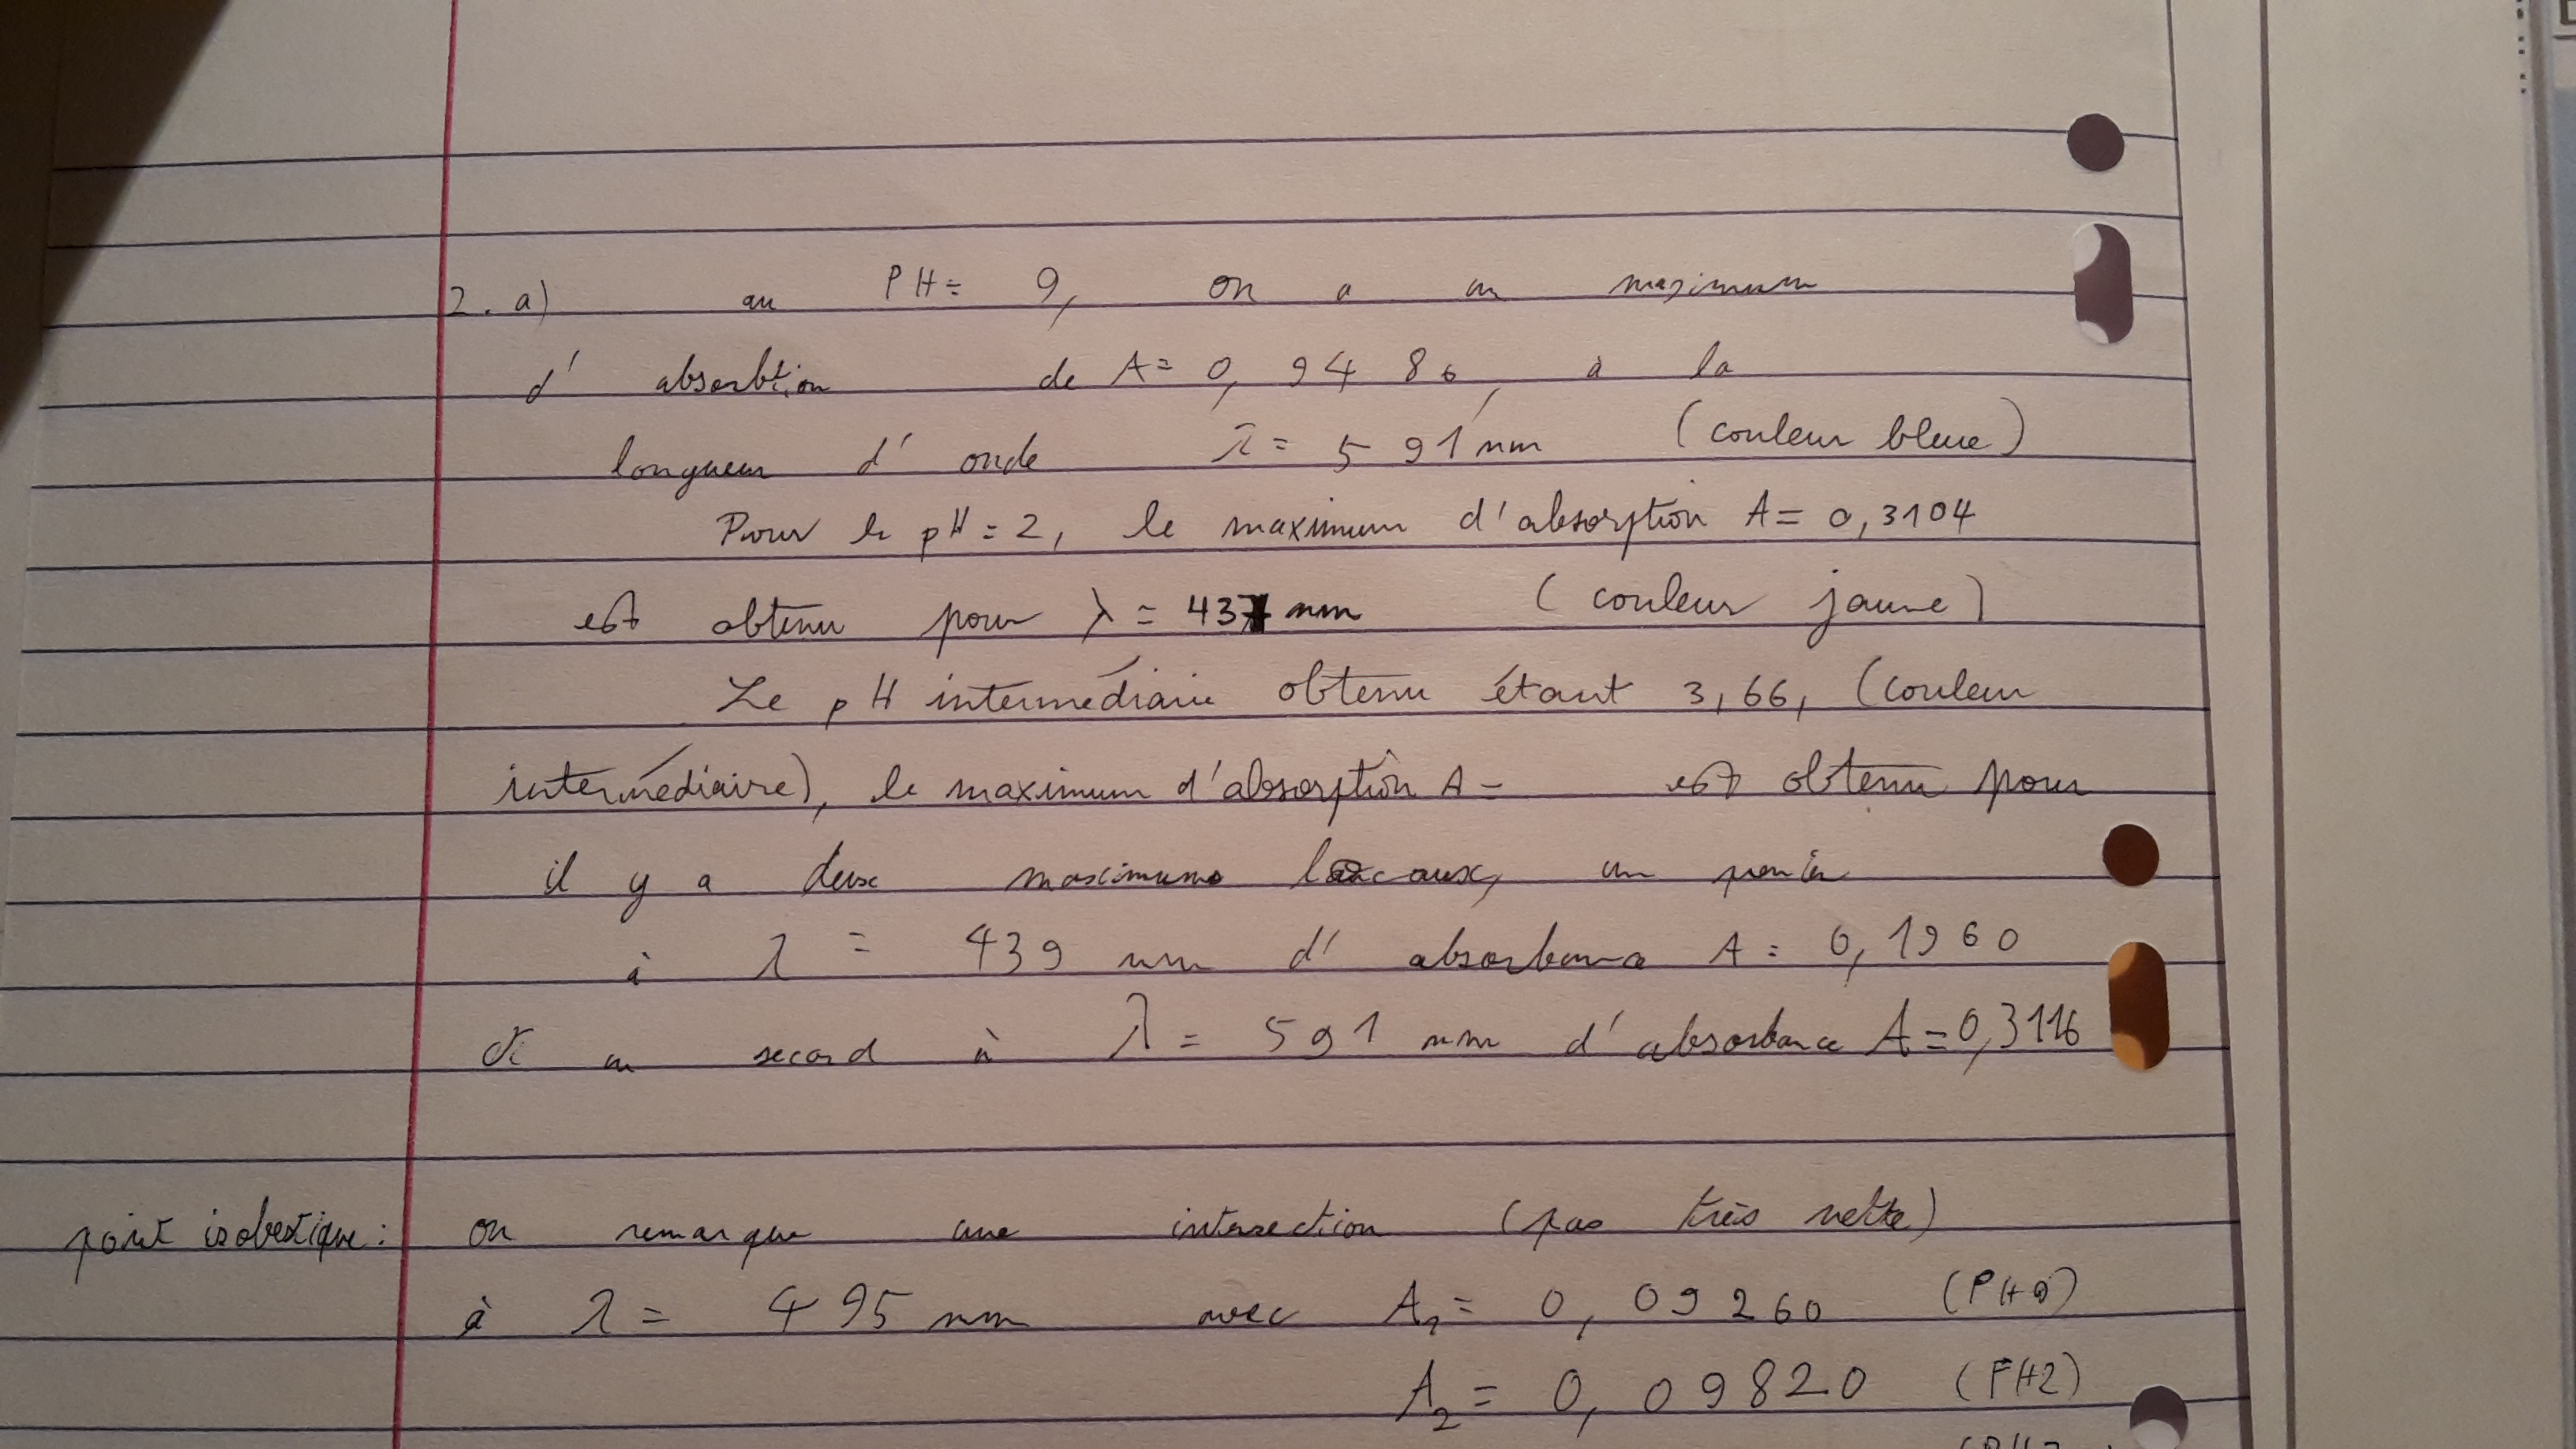 2. a) au PH = 9, on a un maximum
d' absorbtion de A = 0, 9486, à la
longueur d' onde λ = 591 nm (couleur bleue)
Pour le pH = 2, le maximum d'absorption A = 0,3104
est obtenu pour λ = 437 nm (couleur jaune)
Le pH intermédiaire obtenu étant 3,66, (couleur
intermédiaire), le maximum d'absorption A = est obtenu pour
il y a deux maximums locaux, un premier
à λ = 439 nm d' absorbance A = 0,1960
et un second à λ = 591 nm d' absorbance A = 0,3116
point isobestique : on remarque une intersection (pas très nette)
à λ = 495 nm avec A1 = 0, 09260 (PH9)
A2 = 0, 09820 (PH2)